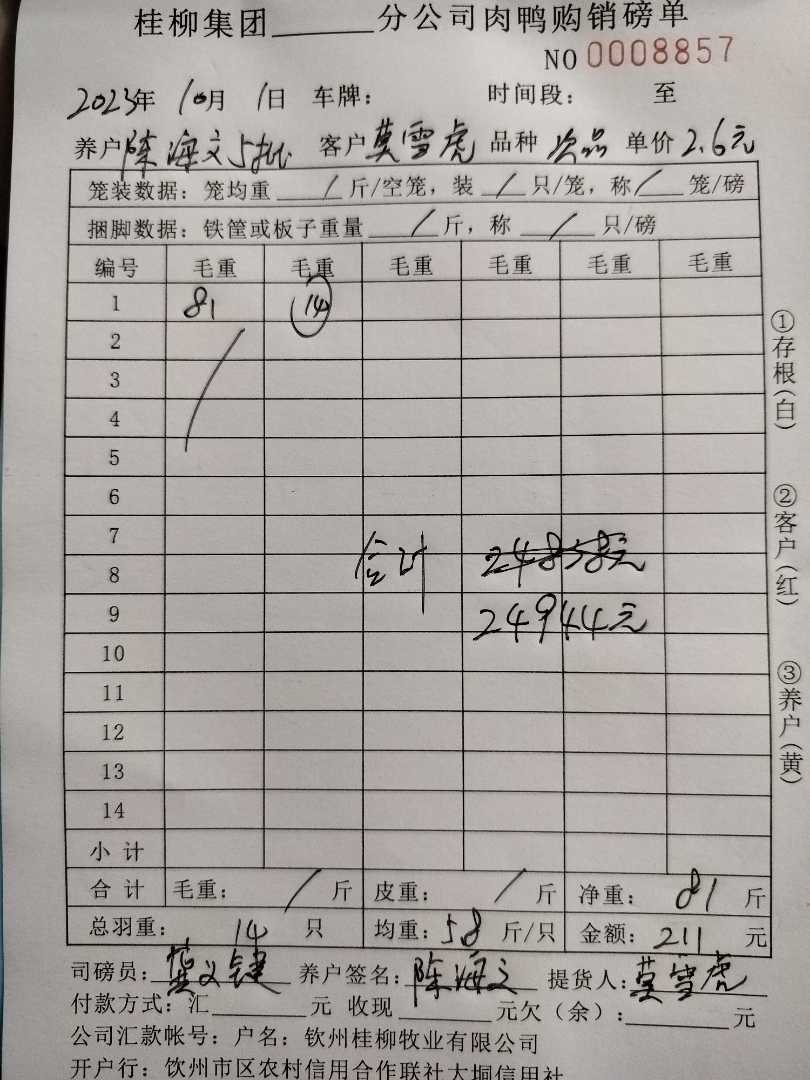 桂柳集团______分公司肉鸭购销磅单
NO 0008857
2023年 10月 1日 车牌： 时间段： 至
养户 陈海文5批 客户 莫雪虎 品种 次品 单价 2.6元
笼装数据：笼均重 / 斤/空笼，装 / 只/笼，称 / 笼/磅
捆脚数据：铁筐或板子重量 / 斤，称 / 只/磅
编号 毛重 毛重 毛重 毛重 毛重 毛重
1 81 14
2
3
4
5
6
7
合计 24858元
8
9 24944元
10
11
12
13
14
小计
合计 毛重： / 斤 皮重： / 斤 净重： 81 斤
总羽重： 14 只 均重：5.8 斤/只 金额：211 元
司磅员： 养户签名：陈海文 提货人：莫雪虎
付款方式：汇______元 收现______元欠（余）：______元
公司汇款帐号：户名：钦州桂柳牧业有限公司
开户行：钦州市区农村信用合作联社大垌信用社
①存根（白）
②客户（红）
③养户（黄）